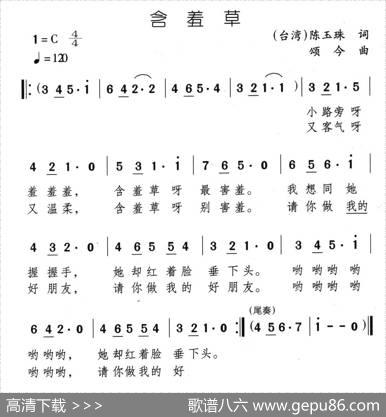 含羞草
1=C 4/4
（台湾）陈玉珠 词
♩=120
颂今 曲
‖:（3 4 5·i | 6 4 2·2 | 4 6 5·4 | 3 2 1·1）|
小路旁呀
又客气呀
4 2 1·0 | 5 3 1·i | 7 6 5·0 | 6 5 6·i |
羞羞羞， 含羞草呀 最害羞。 我想同她
又温柔， 含羞草呀 别害羞。 请你做 我的
4 2 1·0 | 4 6 5 5 4 | 3 2 1·0 | i·i i·i |
握握手， 她却红着脸 垂下头。 哟哟哟哟
好朋友， 请你做我的 好朋友。 哟哟哟哟
6 4 2·0 | 4 6 5 5 4 | 3 2 1·0 :‖
（尾奏）
（4 5 6·7 | i - 0）‖
哟哟哟， 她却红着脸 垂下头。
哟哟哟， 请你做我的 好
高清下载 >>>
歌谱八六 www.gepu86.com